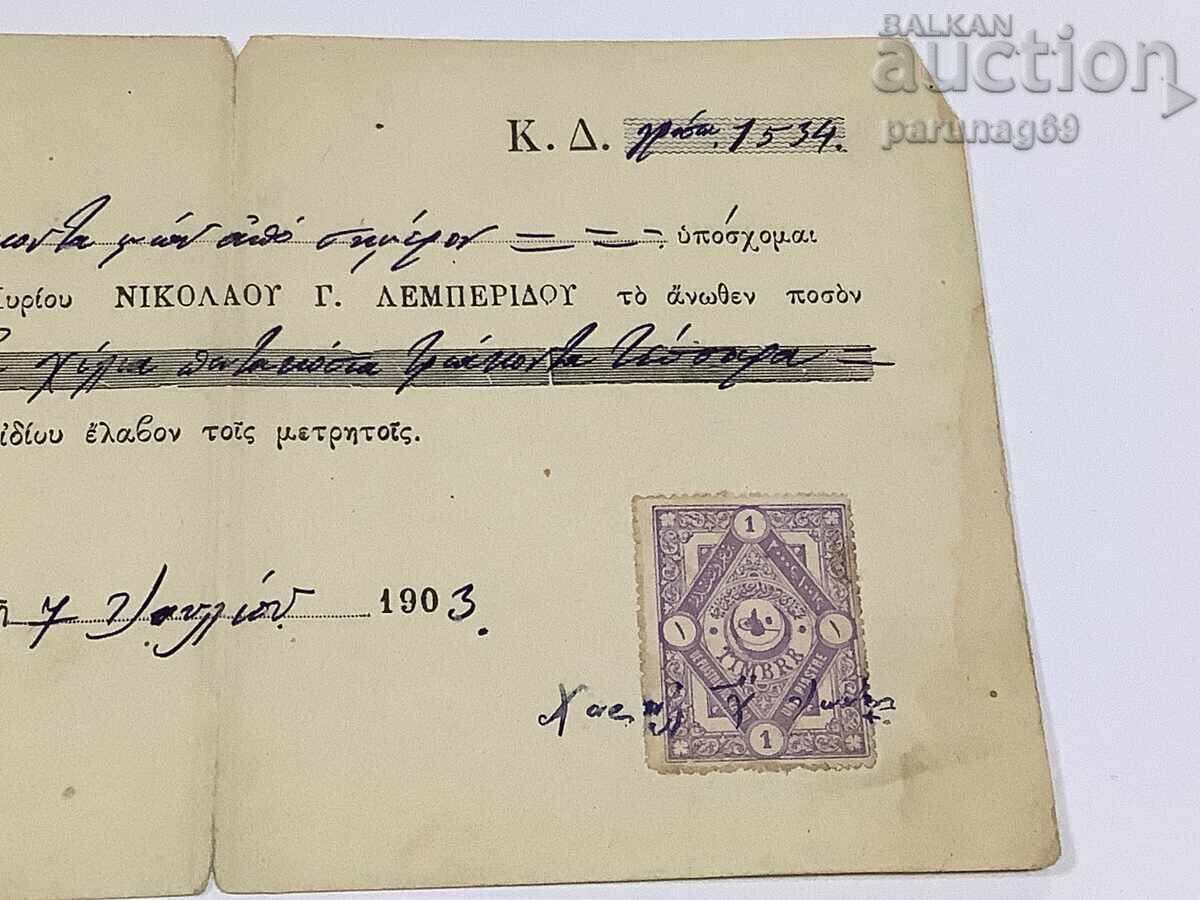 BALKAN
auction
parunag69
Κ. Δ. γρόσια 1534.
ἀπὸ σήμερον = = - ὑπόσχομαι
Κυρίου ΝΙΚΟΛΑΟΥ Γ. ΛΕΜΠΕΡΙΔΟΥ τὸ ἄνωθεν ποσὸν
χίλια πεντακόσια τριάκοντα τέσσαρα
ἰδίου ἔλαβον τοῖς μετρητοῖς.
7 Ἰουλίου 1903.
1
١ ١
TIMBRE
PIASTRE
1